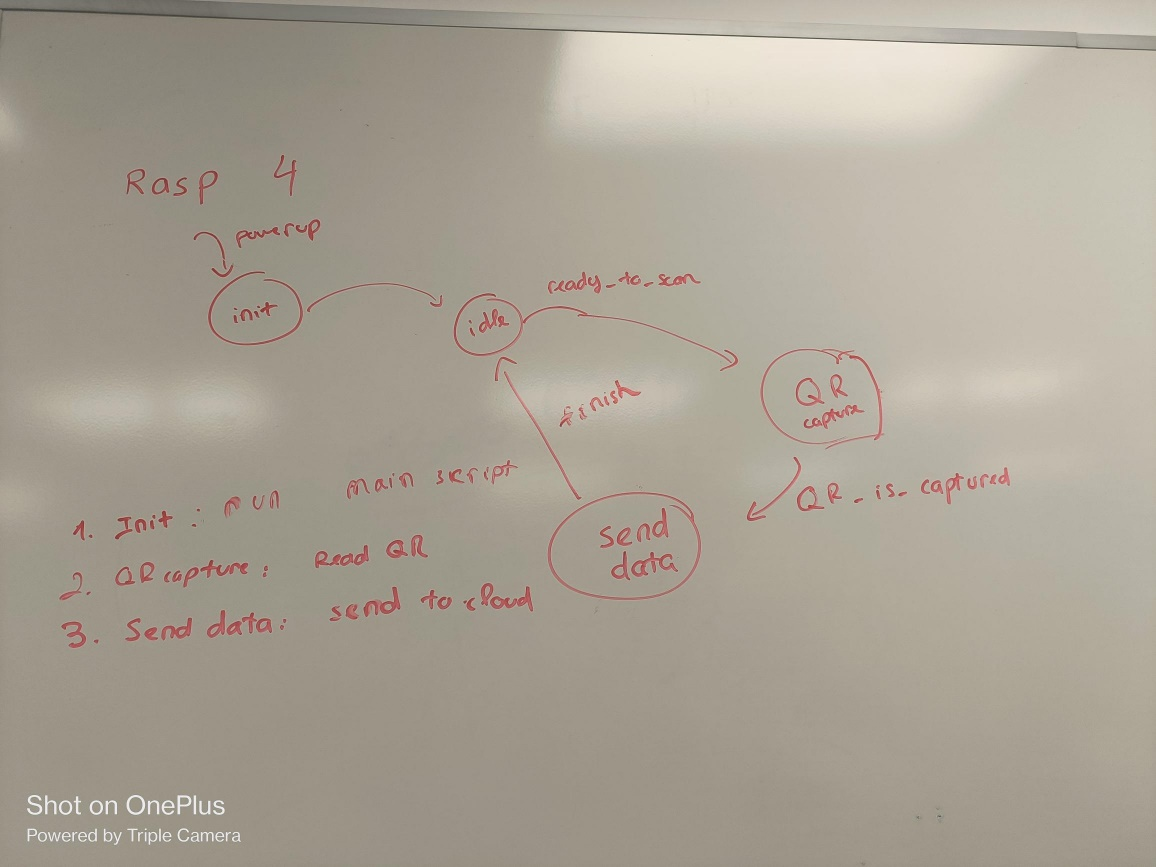 Rasp 4
powerup
init
idle
ready_to_scan
QR
capture
finish
QR_is_captured
send
data
1. Init : run main script
2. QR capture : Read QR
3. Send data: send to cloud
Shot on OnePlus
Powered by Triple Camera